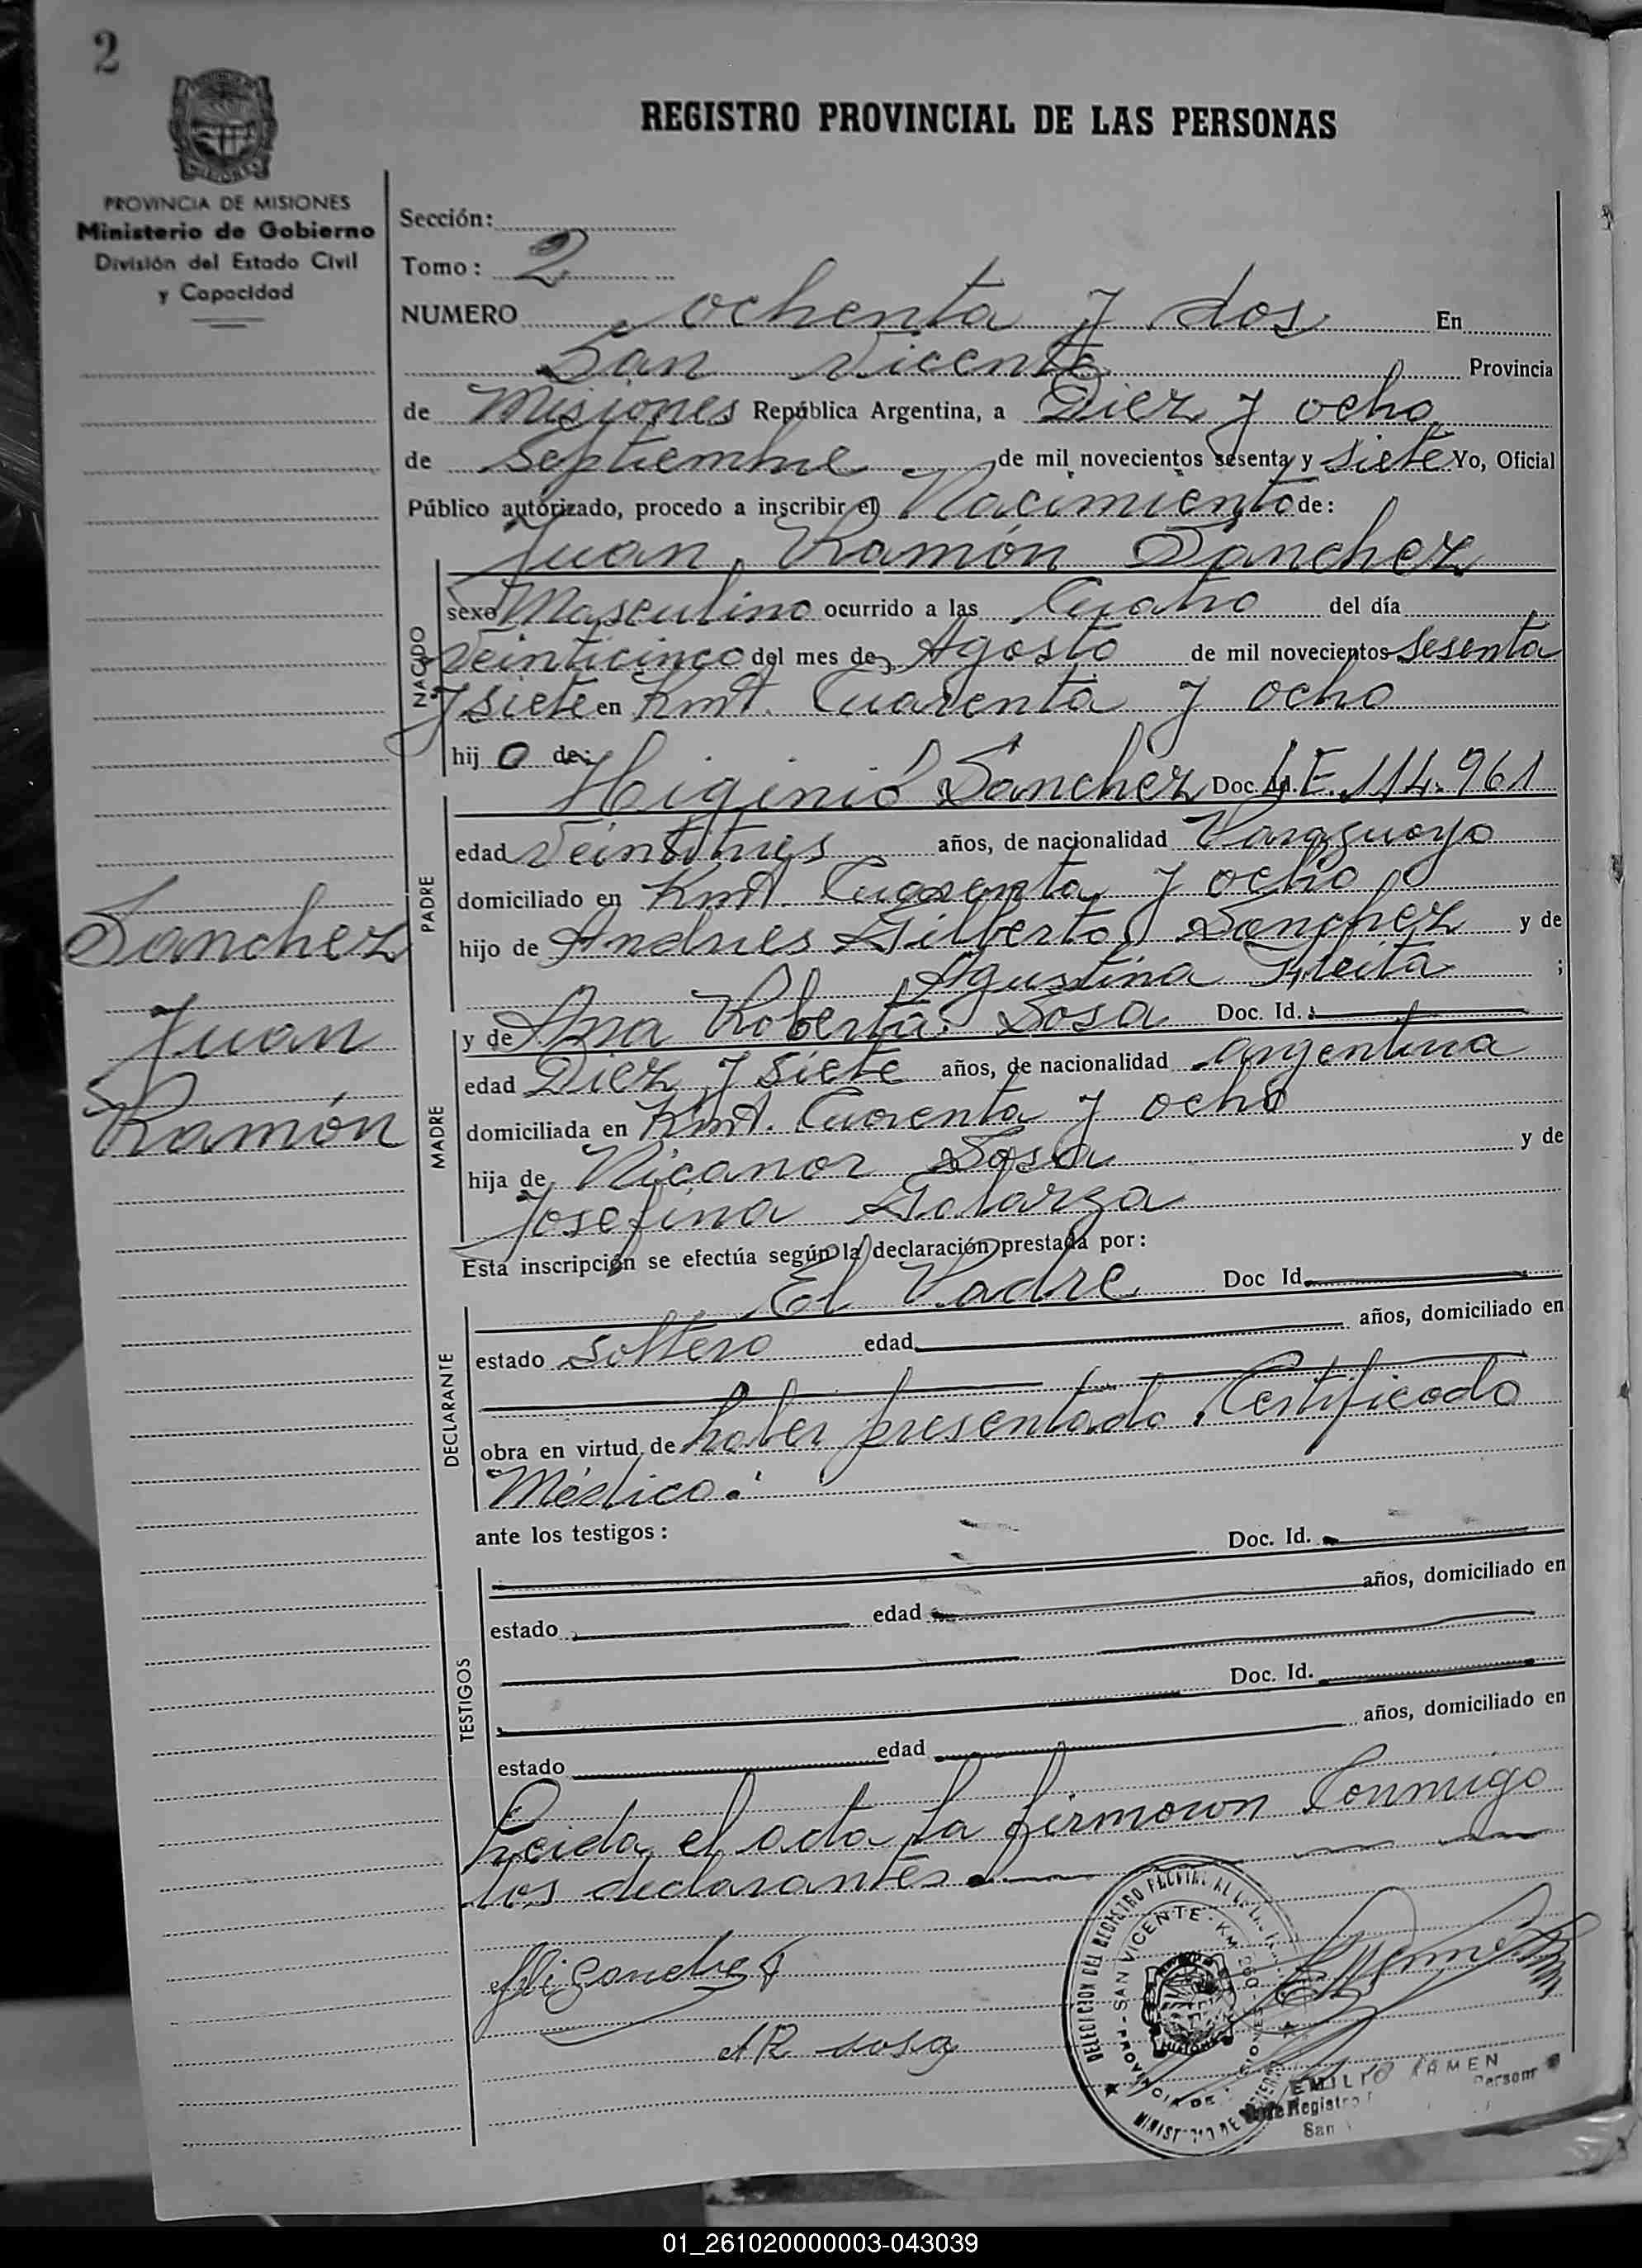 2
REGISTRO PROVINCIAL DE LAS PERSONAS
PROVINCIA DE MISIONES
Ministerio de Gobierno
División del Estado Civil
y Capacidad
Sección:
Tomo: 2
NUMERO ochenta y dos En
San Vicente Provincia
de Misiones República Argentina, a Diez y ocho
de Septiembre de mil novecientos sesenta y siete Yo, Oficial
Público autorizado, procedo a inscribir el Nacimiento de:
Juan Ramón Sanchez
NACIDO
sexo Masculino ocurrido a las Cuatro del día
Veinticinco del mes de Agosto de mil novecientos sesenta
y siete en Kmt. Cuarenta y ocho
hijo de:
Higinio Sanchez Doc. Id. L.E. 114.961
PADRE
edad Veintitres años, de nacionalidad Paraguayo
domiciliado en Kmt. Cuarenta y ocho
hijo de Andres Gilberto Sanchez y de
Agustina Fleita ;
y de Ana Roberta Sosa Doc. Id.:
MADRE
edad Diez y siete años, de nacionalidad argentina
domiciliada en Kmt. Cuarenta y ocho
hija de Nicanor Sosa y de
Josefina Galarza
Sanchez
Juan
Ramón
Esta inscripción se efectúa según la declaración prestada por:
El Padre Doc Id.
DECLARANTE
estado soltero edad años, domiciliado en
obra en virtud de haber presentado Certificado
Médico.
ante los testigos: Doc. Id.
TESTIGOS
estado edad años, domiciliado en
Doc. Id.
estado edad años, domiciliado en
Leida el acta la firmaron Conmigo
los declarantes.
Hi Sanchez
A R sosa
DELEGACION DEL REGISTRO PROVINCIAL DE LAS
SAN VICENTE - KM
PROVINCIA DE MISIONES
MINISTERIO DE
EMILIO
Registro
San
01_261020000003-043039